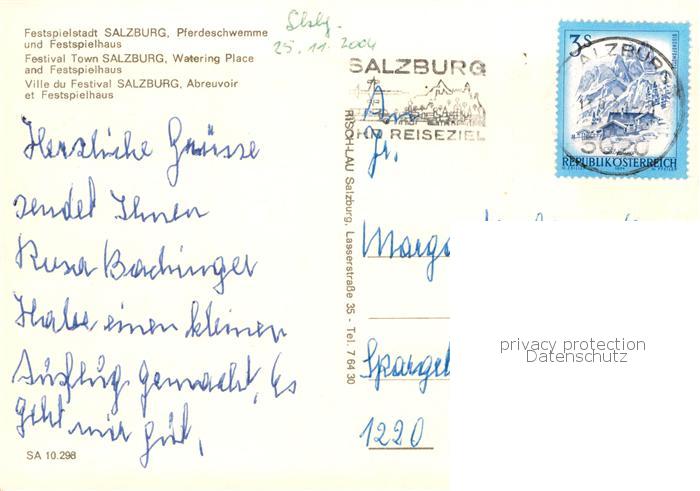 Festspielstadt SALZBURG, Pferdeschwemme
und Festspielhaus
Festival Town SALZBURG, Watering Place
and Festspielhaus
Ville du Festival SALZBURG, Abreuvoir
et Festspielhaus
25. 11. 2004
SALZBURG
IHR REISEZIEL
3S
SALZBURG
5020
REPUBLIK ÖSTERREICH
Herzliche Grüsse
sendet Ihnen
Rusa Bachinger
Habe einen kleinen
Ausflug gemacht, Es
geht mir gut,
SA 10.298
RISCH-LAU Salzburg, Lasserstraße 35 - Tel. 7 64 30
An
Fr.
Marga
Spargel
1220
privacy protection
Datenschutz